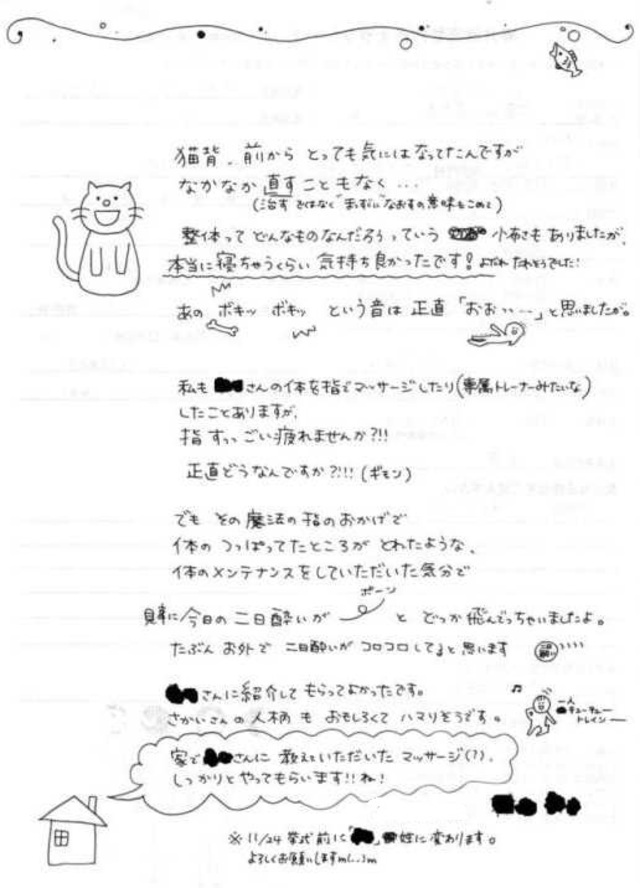 猫背、前から とっても気にはなってたんですが
なかなか直すこともなく…
(治す ではなく"まっすぐ"になおすの意味もこめて)
整体って どんなものなんだろうっていう 小怖さも ありましたが、
本当に寝ちゃうくらい 気持ち良かったです! よだれ たれそうでした!
あの ボキッ ボキッ という音は 正直 「おお……」と思いましたが。
私も さんの体を指でマッサージしたり(専属トレーナーみたいな)
したことありますが、
指 すっっごい疲れませんか?!!
正直どうなんですか?!!! (ギモン)
でも その 魔法の 指の おかげで
体の つっぱってたところが とれたような、
体のメンテナンスをしていただいた気分で
ポーン
見事に今日の二日酔いが と どっか飛んでっちゃいましたよ。
たぶん お外で 二日酔いが コロコロしてると思います 二日酔い
さんに紹介して もらってよかったです。
さかいさんの人柄も おもしろくて ハマりそうです。
一人
チューチュー
トレイン
家で さんに 教えていただいた マッサージ(?)、
しっかりと やってもらいます!! ね!
※ 11/24 挙式前に「 」姓に変わります。
よろしくお願いしますm(..)m